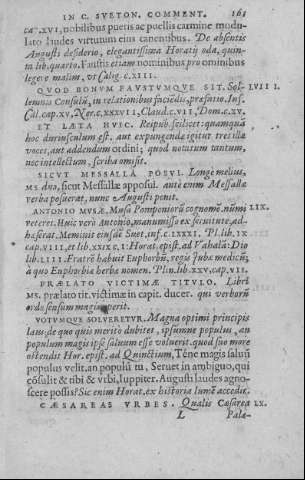 IN C. SVETON. COMMENT. 161
ca˜ XVI, nobilibus pueris ac puellis carmine modu-
lato laudes virtutum eius canentibus. De absentis
Augusti desiderio, elegantissima Horatij oda, quin-
ta lib. quarto. Faustis etiam nominibus pro ominibus
legere malim, vt Calig. c. XIII.
QVOD BONVM FAVSTVMQVE SIT. Sol- LVIII.
lemnis Consulū, in relationibus faciēdis, præfatio. Inf.
Cal. cap. XV, Ner. c. XXXVII, Claud. c. VII, Dom. c. XV.
ET LÆTA HVIC. Reipub. scilicet: quamquā
hoc duriusculum est. aut expungenda igitur tres illæ
voces, aut addendum ordini; quod notatum tantum,
nec intellectum, scriba omisit.
SICVT MESSALLA POSVI. Longe melius,
MS. duo, sicut Messallæ apposui. ante enim Messallæ
verba posuerat, nunc Augusti ponit.
ANTONIO MVSÆ. Musa Pomponiorū cognomē. numi LIX.
veteres. Huic vero Antonio, manumisso ex seruitute, ad-
hæserat. Meminit eiusdē Suet. inf. c. LXXXI. Pl. lib. IX
cap. VIII, et lib. XXIX, I: Horat. epist. ad Vahalā: Dio
lib. LIII. Fratrē habuit Euphorbū, regis Iubæ medicū,
à quo Euphorbia herba nomen. Plin. lib. XXV, cap. VII.
PRÆLATO VICTIMÆ TITVLO. Libri
MS. prælato tit. victimæ in capit. ducer. qui verborū
ordo sensum magis aperit.
VOTVMQVE SOLVERETVR. Magna optimi principis
laus; de quo quis merito dubitet, ipsumne populus, an
populum magis ipse saluum esse voluerit. quod suo more
ostendit Hor. epist. ad Quinctium, Tēne magis saluū
populus velit, an populū tu, Seruet in ambiguo, qui
cōsulit & tibi & vrbi, Iuppiter. Augusti laudes agno-
scere possis? Sic enim Horat. ex historia lumē accedit.
CÆSAREAS VRBES. Qualis Cæsarea LX.
L Pala-